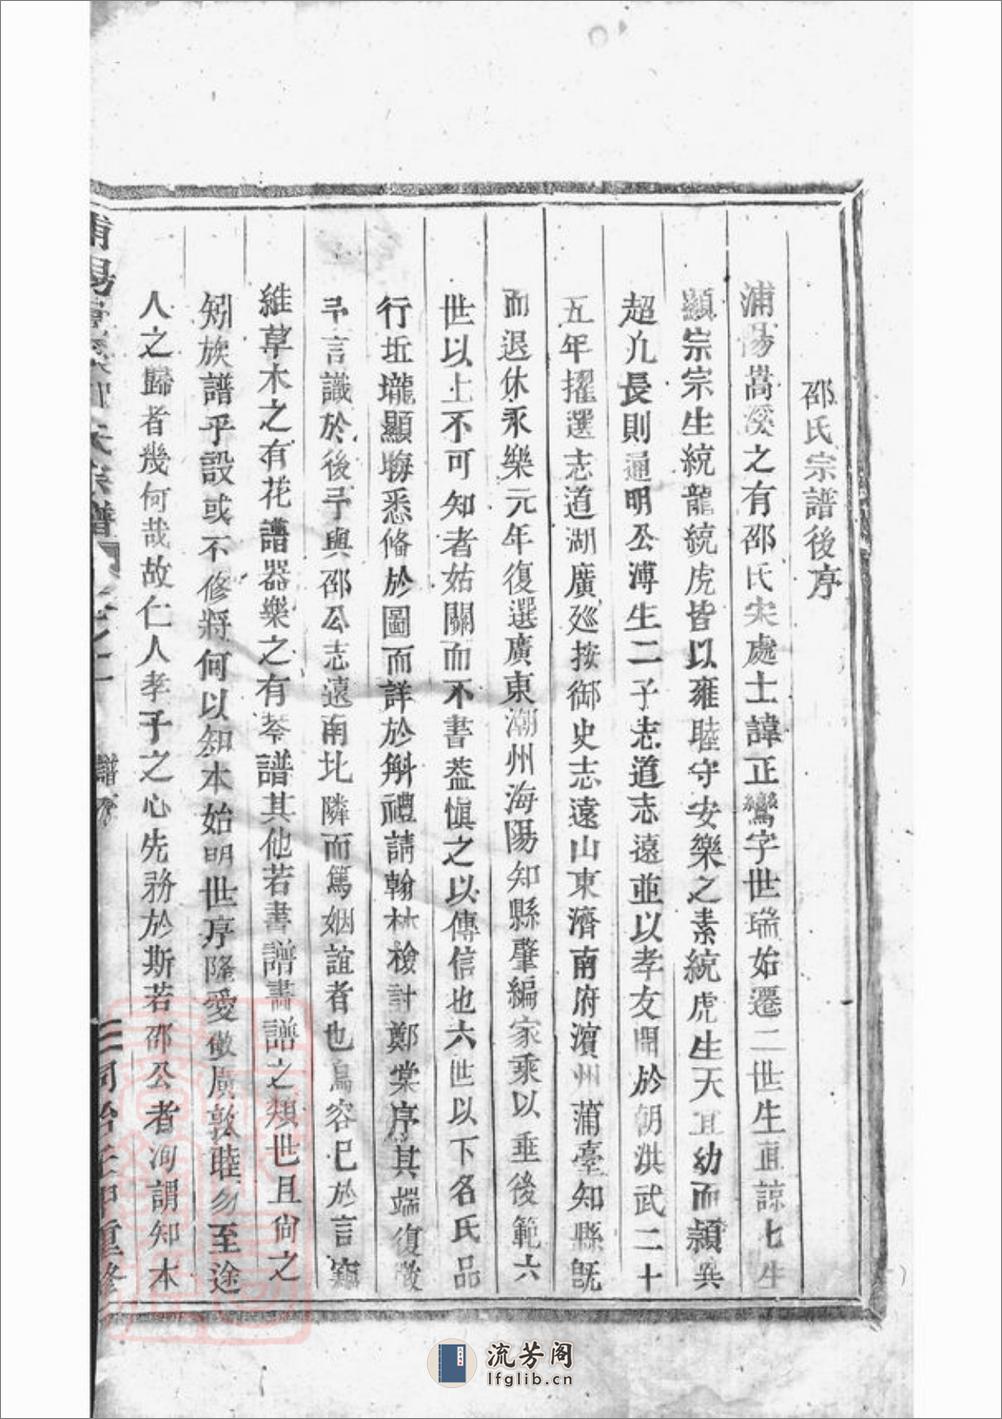 邵氏宗譜後序
浦陽嵩溪之有邵氏宋處士諱正鸞字世瑞始遷二世生直諒七生
顯宗宗生統龍統虎皆以雍睦守安樂之素統虎生天宜幼而穎異
超九長則通明公溥生二子志道志遠並以孝友聞於朝洪武二十
五年擢選志道湖廣廵按御史志遠山東濟南府濱州蒲臺知縣旣
而退休永樂元年復選廣東潮州海陽知縣肇編家乘以垂後範六
世以上不可知者姑闕而不書葢愼之以傳信也六世以下各氏品
行坵壠顯晦悉俻於圖而詳於斛禮請翰林檢討鄭棠序其端復徵
予言識於後予與邵公志遠南北隣而篤姻誼者也烏容巳於言竊
維草木之有花譜器樂之有琴譜其他若書譜畵譜之類世且尙之
矧族譜乎設或不修將何以知本始明世序隆愛敬廣敦睦勿至途
人之歸者幾何哉故仁人孝子之心先務於斯若邵公者洵謂知本
浦陽嵩溪邵氏宗譜
卷之一
譜序
三
同治壬申重修
流芳阁
lfglib.cn